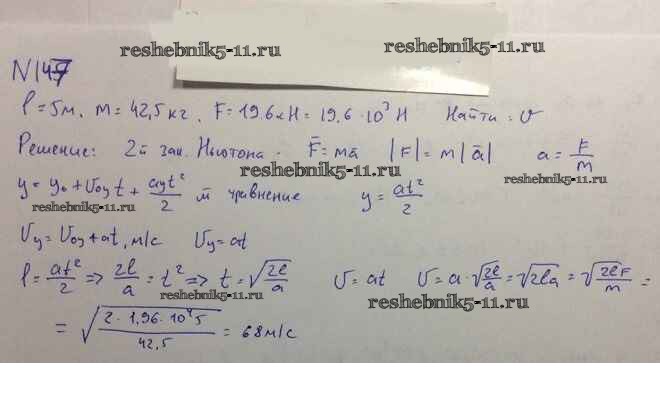 reshebnik5-11.ru reshebnik5-11.ru
N 147
l = 5м. m = 42,5 кг. F = 19.6кН = 19,6 · 10³ Н Найти: υ
Решение: 2й зак. Ньютона - F̄ = mā |F̄| = m|ā| a = F/m
reshebnik5-11.ru
y = y₀ + υ₀y t + ayt²/2 м уравнение y = at²/2
reshebnik5-11.ru reshebnik5-11.ru
υy = υ₀y + at, м/с υy = at
l = at²/2 => 2l/a = t² => t = √(2l/a) υ = at υ = a · √(2l/a) = √(2la) = √(2lF/m) =
reshebnik5-11.ru reshebnik5-11.ru
= √(2 · 1,96 · 10⁴ 5/42,5) = 68 м/с